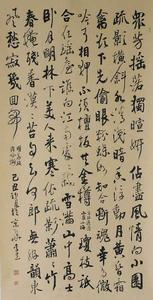 衆芳摇落獨暄妍佔盡風情向小園
疏影橫斜水清淺暗香浮動月黃昏霜
禽欲下先偷眼粉蝶如知合斷魂幸有微
吟可相狎不須檀板共金樽 瓊枝祗
合在瑶臺誰向江南處處栽雪滿山中高士
卧月明林下美人來寒依疏影蕭蕭竹
春掩殘香漠漠苔自去何郎無好韻東
風愁寂幾回開 己丑